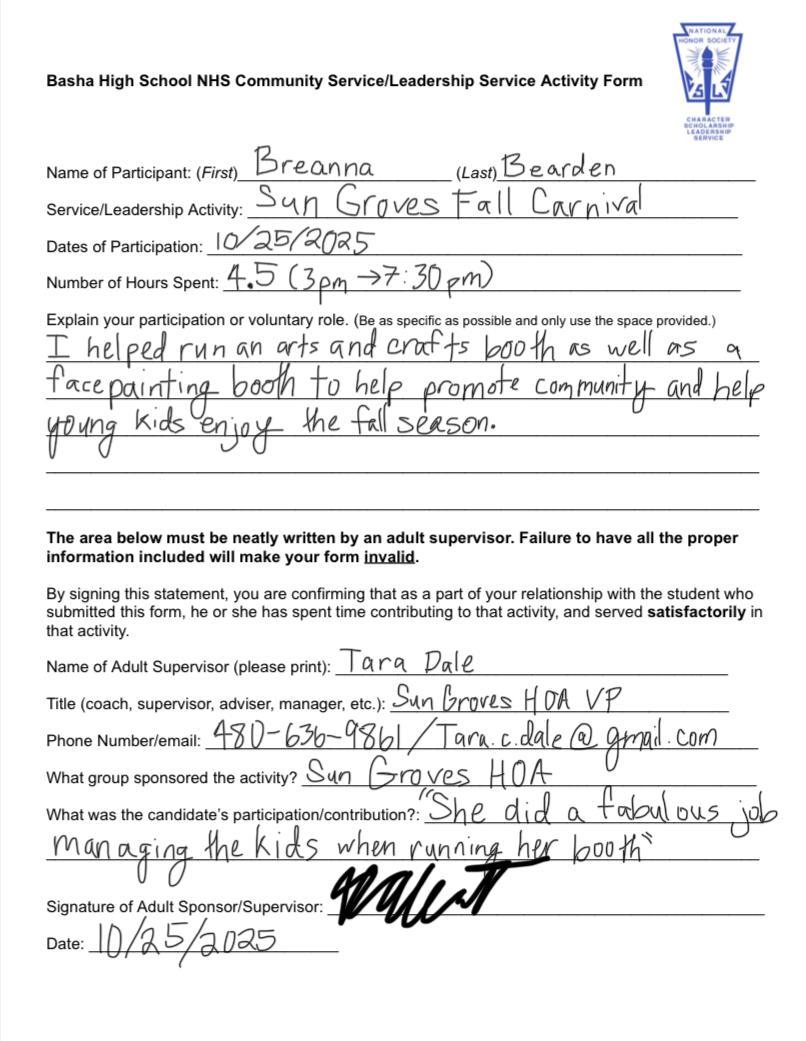 NATIONAL
HONOR SOCIETY
CHARACTER
SCHOLARSHIP
LEADERSHIP
SERVICE
Basha High School NHS Community Service/Leadership Service Activity Form
Name of Participant: (First) Breanna (Last) Bearden
Service/Leadership Activity: Sun Groves Fall Carnival
Dates of Participation: 10/25/2025
Number of Hours Spent: 4.5 (3pm →7:30pm)
Explain your participation or voluntary role. (Be as specific as possible and only use the space provided.)
I helped run an arts and crafts booth as well as a
facepainting booth to help promote community and help
young kids enjoy the fall season.
The area below must be neatly written by an adult supervisor. Failure to have all the proper
information included will make your form invalid.
By signing this statement, you are confirming that as a part of your relationship with the student who
submitted this form, he or she has spent time contributing to that activity, and served satisfactorily in
that activity.
Name of Adult Supervisor (please print): Tara Dale
Title (coach, supervisor, adviser, manager, etc.): Sun Groves HOA VP
Phone Number/email: 480-636-9861/Tara.c.dale@gmail.com
What group sponsored the activity? Sun Groves HOA
What was the candidate's participation/contribution?: "She did a fabulous job
managing the kids when running her booth"
Signature of Adult Sponsor/Supervisor:
Date: 10/25/2025